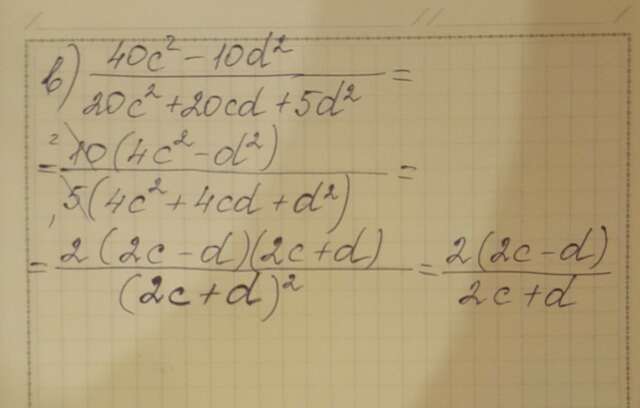 в) (40c² − 10d²)/(20c² + 20cd + 5d²) =
= ²10(4c² − d²)/₁5(4c² + 4cd + d²) =
= 2(2c − d)(2c + d)/(2c + d)² = 2(2c − d)/(2c + d)